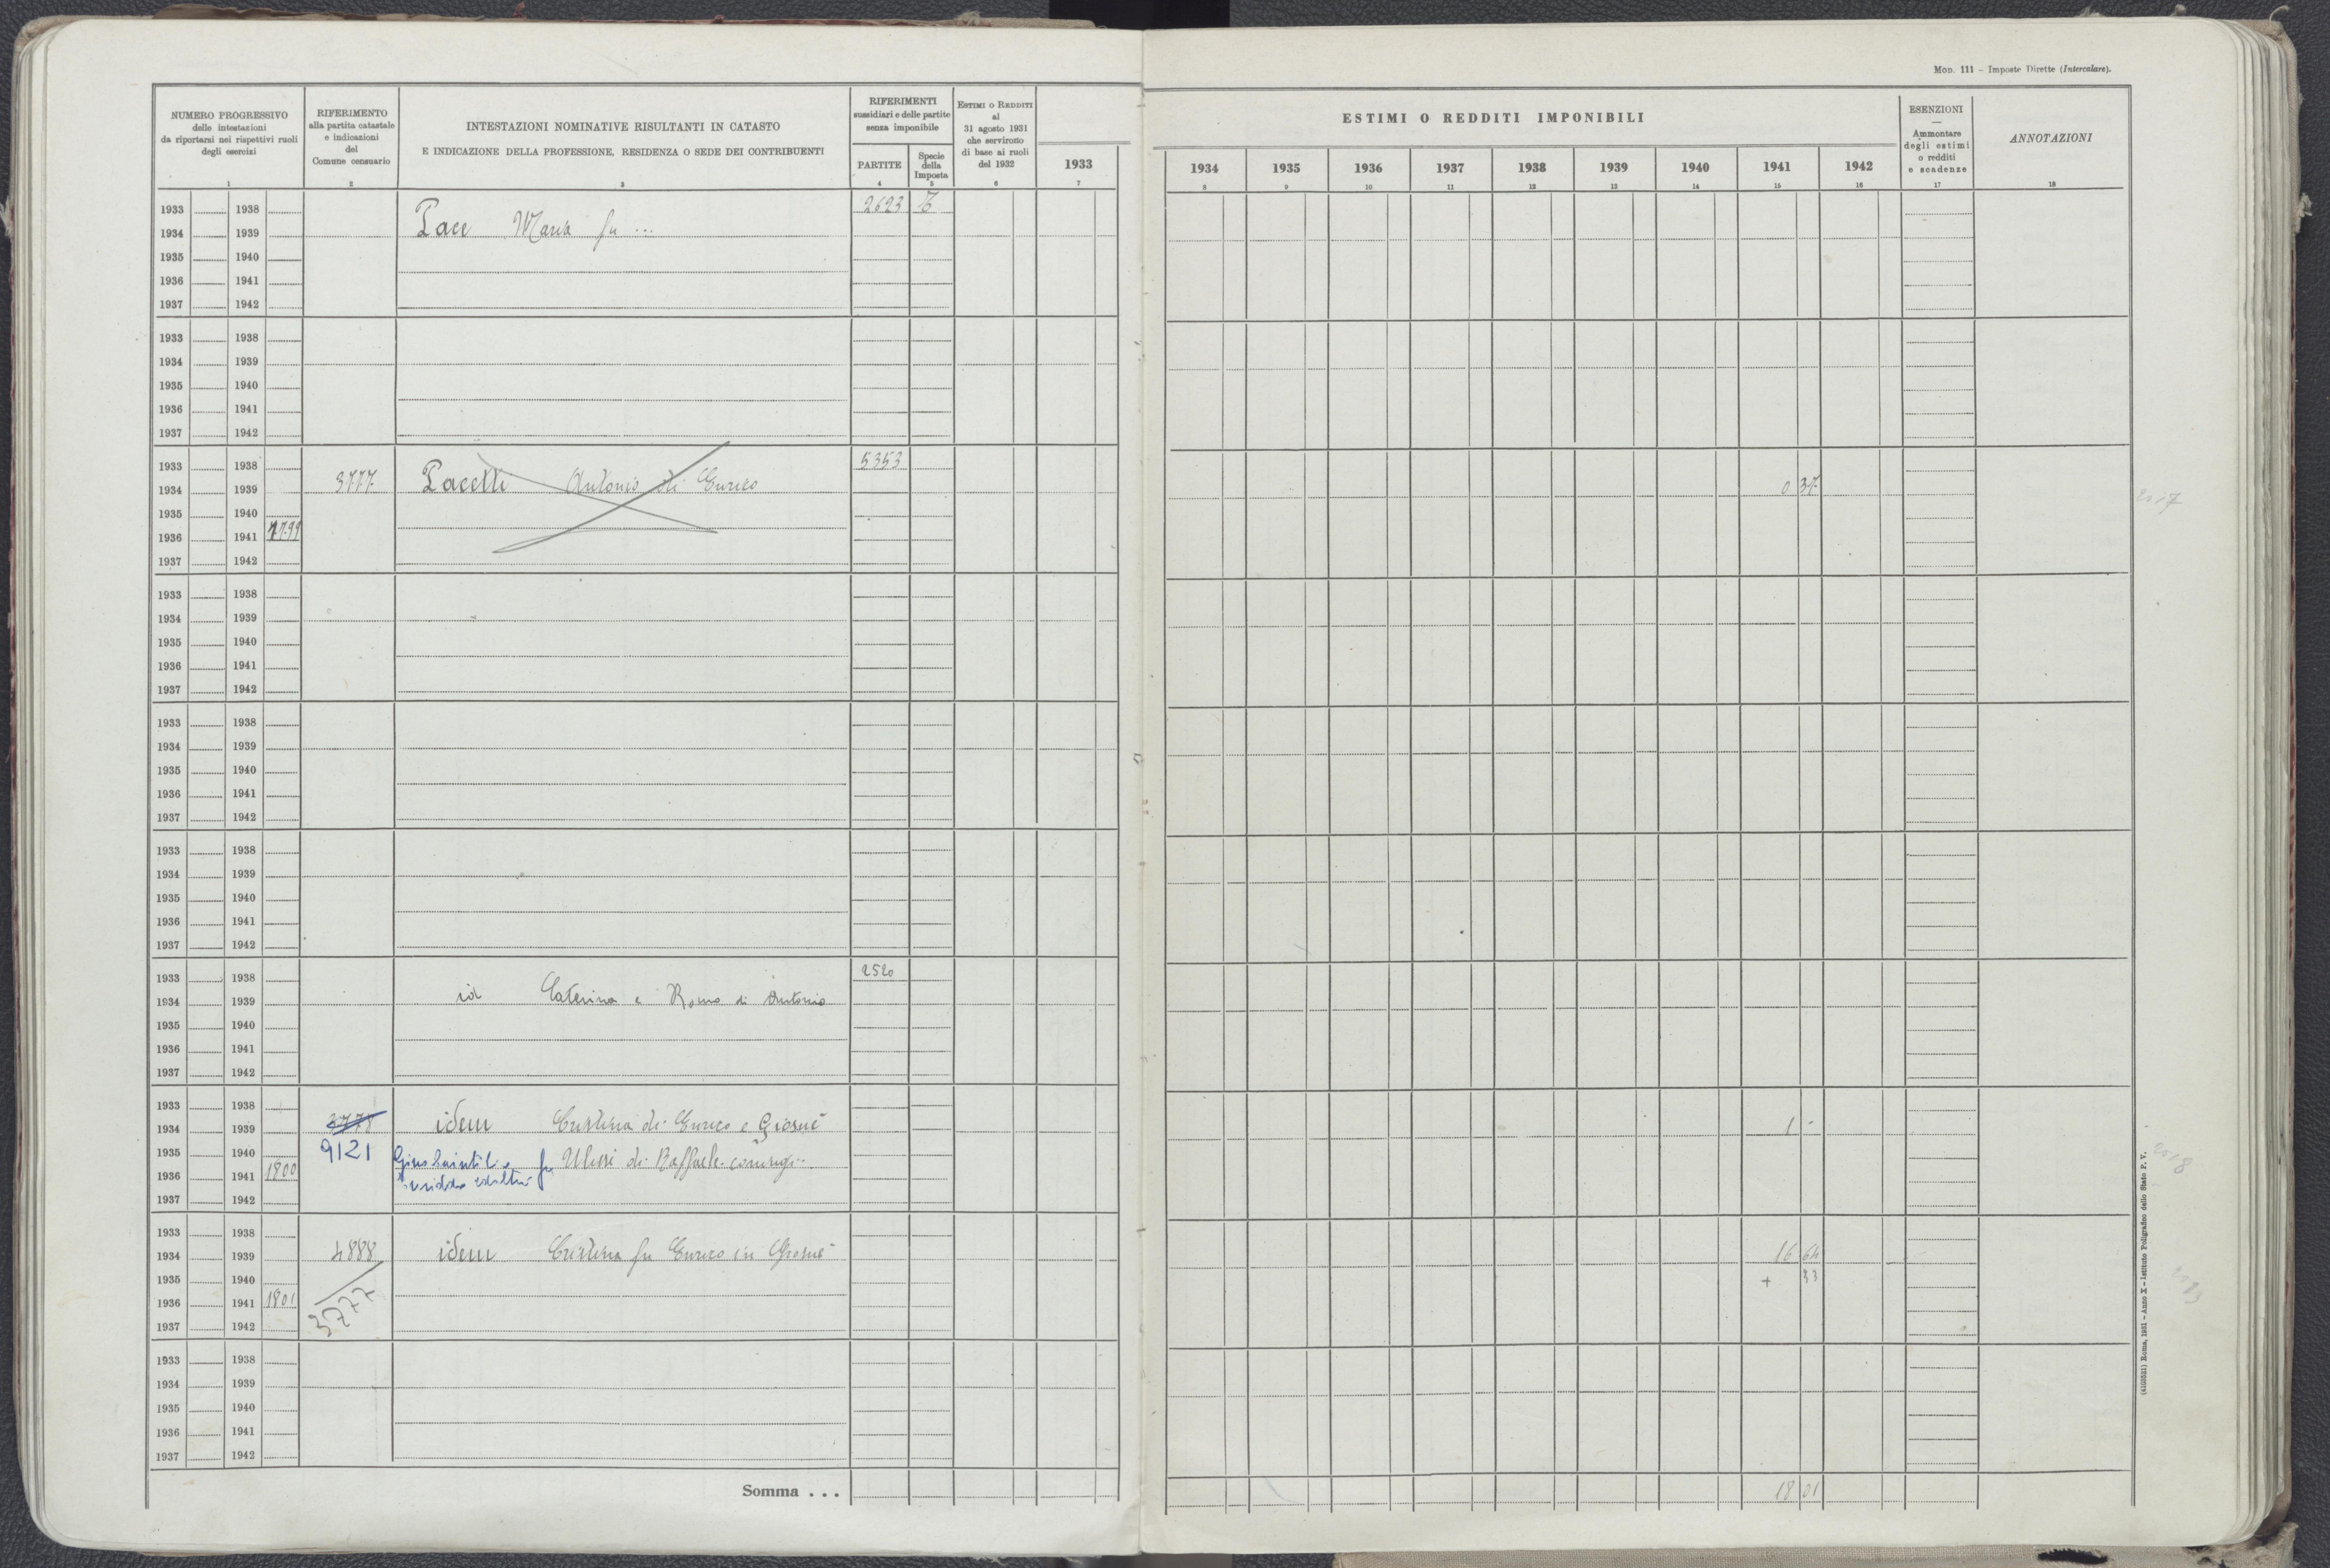 MOD. 111 – Imposte Dirette (Intercalare).
NUMERO PROGRESSIVO
delle intestazioni
da riportarsi nei rispettivi ruoli
degli esercizi
RIFERIMENTO
alla partita catastale
e indicazioni
del
Comune censuario
INTESTAZIONI NOMINATIVE RISULTANTI IN CATASTO
E INDICAZIONE DELLA PROFESSIONE, RESIDENZA O SEDE DEI CONTRIBUENTI
RIFERIMENTI
sussidiari e delle partite
senza imponibile
PARTITE
Specie
della
Imposta
ESTIMI O REDDITI
al
31 agosto 1931
che servirono
di base ai ruoli
del 1932
1933
ESTIMI O REDDITI IMPONIBILI
1934 1935 1936 1937 1938 1939 1940 1941 1942
ESENZIONI
—
Ammontare
degli estimi
o redditi
e scadenze
ANNOTAZIONI
1 2 3 4 5 6 7 8 9 10 11 12 13 14 15 16 17 18
1933 1938 2623
1934 1939 Pace Maria fu ...
1935 1940
1936 1941
1937 1942
1933 1938
1934 1939
1935 1940
1936 1941
1937 1942
1933 1938 5353
1934 1939 3777 Pacetti Antonio di Enrico 0 37
1935 1940
1936 1941 1799
1937 1942
1933 1938
1934 1939
1935 1940
1936 1941
1937 1942
1933 1938
1934 1939
1935 1940
1936 1941
1937 1942
1933 1938
1934 1939
1935 1940
1936 1941
1937 1942
1933 1938 2520
1934 1939 id Caterina e Romo di Antonio
1935 1940
1936 1941
1937 1942
1933 1938
1934 1939 3778 idem Cristina di Enrico e Giosuè 1 -
1935 1940 9121
1936 1941 1800 fu Ulisse di Raffaele coniugi
1937 1942
1933 1938
1934 1939 4888 idem Cristina fu Enrico in Giosuè 16 64
1935 1940 + 33
1936 1941 1801 3777
1937 1942
1933 1938
1934 1939
1935 1940
1936 1941
1937 1942
Somma . . . 18 01
(4103531) Roma, 1931 – Anno X – Istituto Poligrafico dello Stato P. V.